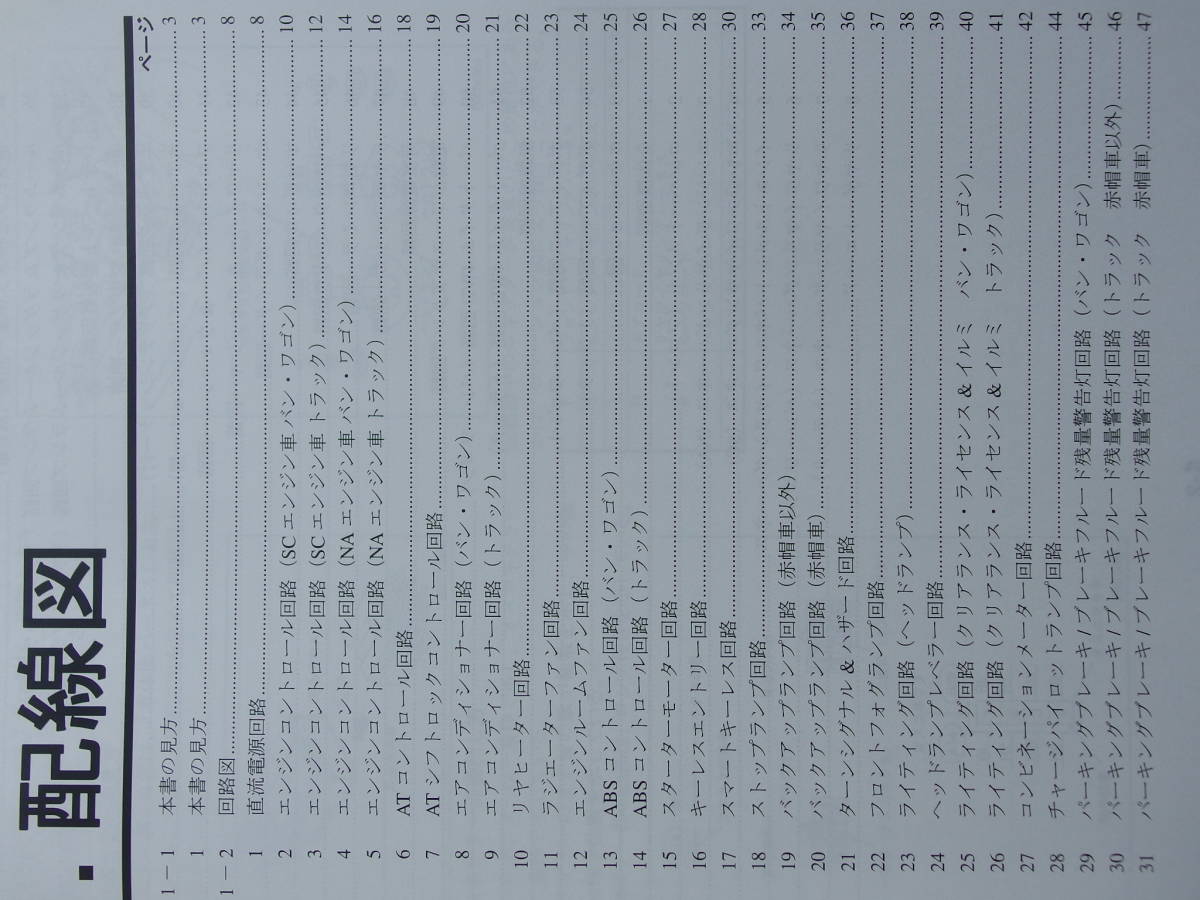 ■ 配線図
ページ
1－1 本書の見方 3
1 本書の見方 3
1－2 回路図 8
1 直流電源回路 8
2 エンジンコントロール回路（SC エンジン車 バン・ワゴン） 10
3 エンジンコントロール回路（SC エンジン車 トラック） 12
4 エンジンコントロール回路（NA エンジン車 バン・ワゴン） 14
5 エンジンコントロール回路（NA エンジン車 トラック） 16
6 AT コントロール回路 18
7 AT シフトロックコントロール回路 19
8 エアコンディショナー回路（バン・ワゴン） 20
9 エアコンディショナー回路（トラック） 21
10 リヤヒーター回路 22
11 ラジエーターファン回路 23
12 エンジンルームファン回路 24
13 ABS コントロール回路（バン・ワゴン） 25
14 ABS コントロール回路（トラック） 26
15 スターターモーター回路 27
16 キーレスエントリー回路 28
17 スマートキーレス回路 30
18 ストップランプ回路 33
19 バックアップランプ回路（赤帽車以外） 34
20 バックアップランプ回路（赤帽車） 35
21 ターンシグナル & ハザード回路 36
22 フロントフォグランプ回路 37
23 ライティング回路（ヘッドランプ） 38
24 ヘッドランプレベラー回路 39
25 ライティング回路（クリアランス・ライセンス & イルミ　バン・ワゴン） 40
26 ライティング回路（クリアランス・ライセンス & イルミ　トラック） 41
27 コンビネーションメーター回路 42
28 チャージパイロットランプ回路 44
29 パーキングブレーキ / ブレーキフルード残量警告灯回路（バン・ワゴン） 45
30 パーキングブレーキ / ブレーキフルード残量警告灯回路（トラック　赤帽車以外） 46
31 パーキングブレーキ / ブレーキフルード残量警告灯回路（トラック　赤帽車） 47